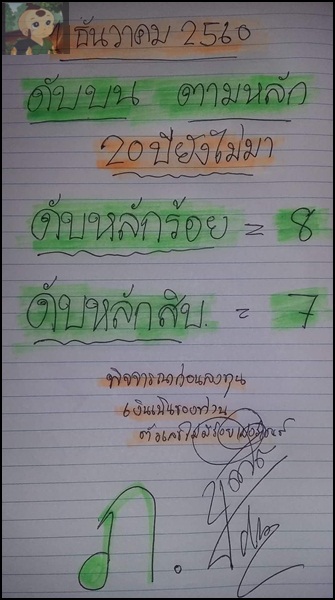 1 ธันวาคม 2560
ดับบน ตามหลัก
20 ปียังไม่มา
ดับหลักร้อย = 8
ดับหลักสิบ. = 7
พิจารณาก่อนลงทุน
เงินเป็นของท่าน
ตัวเลขไม่มีร้อย
ภ.